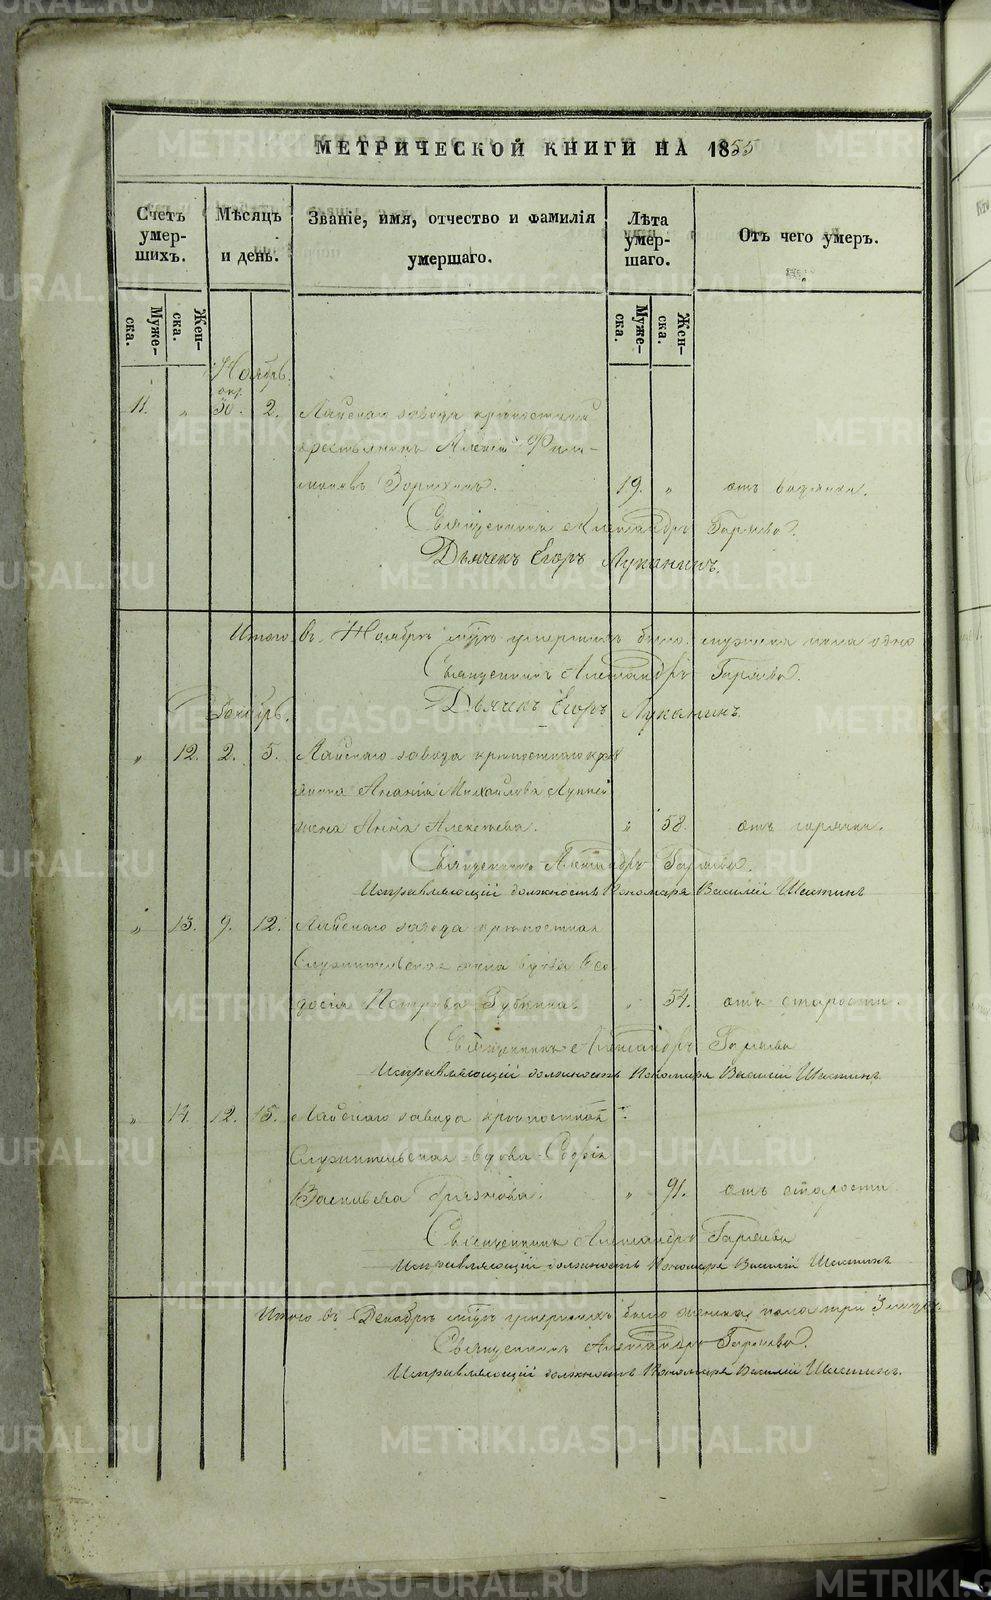 МЕТРИЧЕСКОЙ КНИГИ НА 1855
Счетъ умершихъ.
Мѣсяцъ и день.
Званіе, имя, отчество и фамилія умершаго.
Лѣта умершаго.
Отъ чего умеръ.
Мужеска.
Женска.
Мужеска.
Женска.
Ноябрь.
окт.
11. " 30. 2. Лайскаго завода крѣпостный
крестьянинъ Алексій
Зорихинъ. 19. " отъ водянки.
Священникъ Александръ Гаряевъ.
Дьячекъ Егоръ Луканинъ.
Итого въ Ноябрѣ мцѣ умершихъ было мужеска пола одно
Священникъ Александръ Гаряевъ.
Дьячекъ Егоръ Луканинъ.
Декабрь.
" 12. 2. 5. Лайскаго завода крѣпостнаго
Ананія Михайлова
жена Анна Алексѣева. " 58. отъ горячки.
Священникъ Александръ Гаряевъ.
Исправляющій должность Пономаря Василій Шестинъ
" 13. 9. 12. Лайскаго завода крѣпостная
Служительская жена вдова Ѳео-
досія Петрова Губкина " 54. отъ старости
Священникъ Александръ Гаряевъ
Исправляющій должность Пономаря Василій Шестинъ
" 14. 12. 15. Лайскаго завода крѣпостная
Служительская вдова Софія
Васильева Грязнова. " 91. отъ старости
Священникъ Александръ Гаряевъ
Исправляющій должность Пономаря Василій Шестинъ
Итого въ Декабрѣ мцѣ умершихъ было женска пола три
Священникъ Александръ Гаряевъ.
Исправляющій должность Пономаря Василій Шестинъ.
METRIKI.GASO-URAL.RU